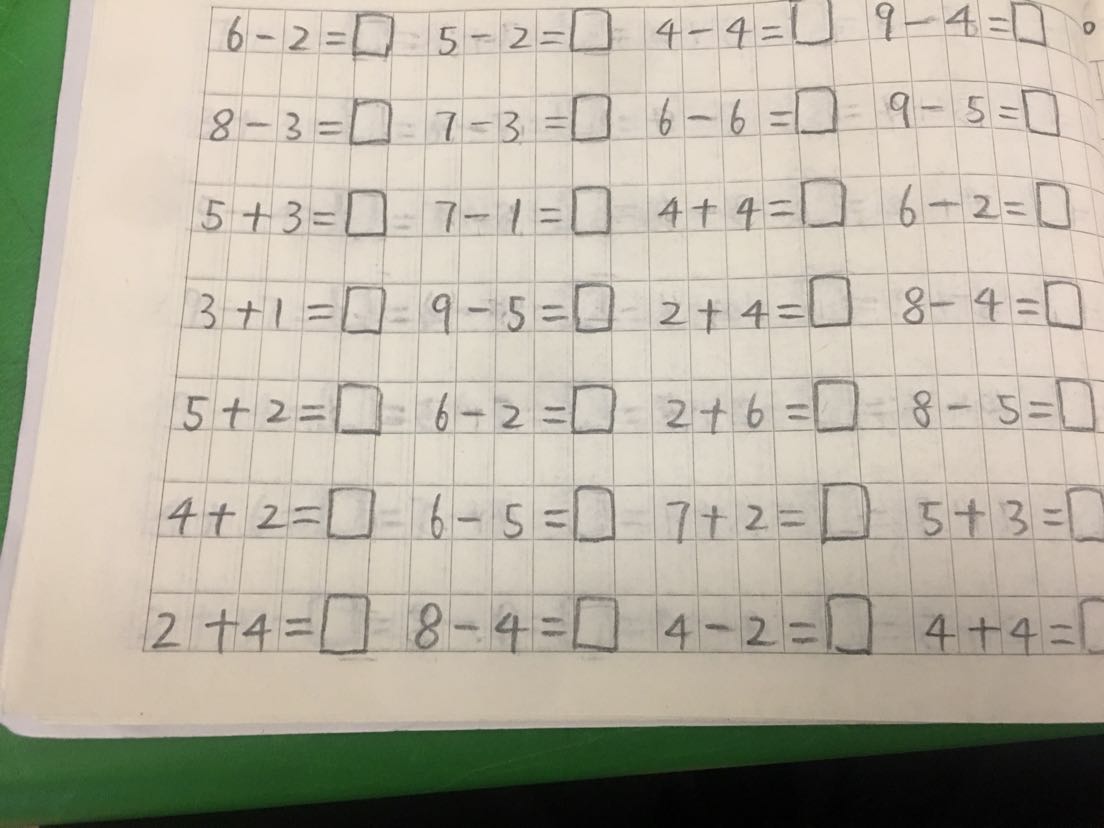 6-2=□ 5-2=□ 4-4=□ 9-4=□
8-3=□ 7-3=□ 6-6=□ 9-5=□
5+3=□ 7-1=□ 4+4=□ 6-2=□
3+1=□ 9-5=□ 2+4=□ 8-4=□
5+2=□ 6-2=□ 2+6=□ 8-5=□
4+2=□ 6-5=□ 7+2=□ 5+3=□
2+4=□ 8-4=□ 4-2=□ 4+4=□